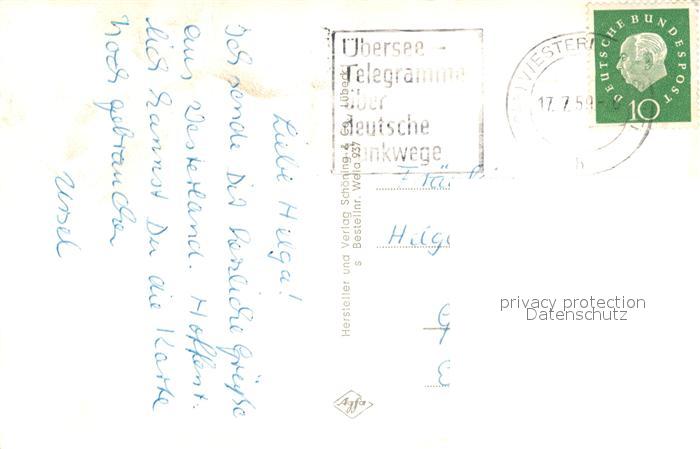 Liebe Hilga!
Ich sende Dir herzliche Grüße
aus Westerland. Hoffent-
lich kannst Du die Karte
noch gebrauchen
Ursel
Hersteller und Verlag Schöning & Co., Lübeck
s Bestellnr. Wela 937
Agfa
Übersee-
Telegramme
über
deutsche
Funkwege
17. 7. 59
h
DEUTSCHE BUNDESPOST
10
Hilg
privacy protection
Datenschutz